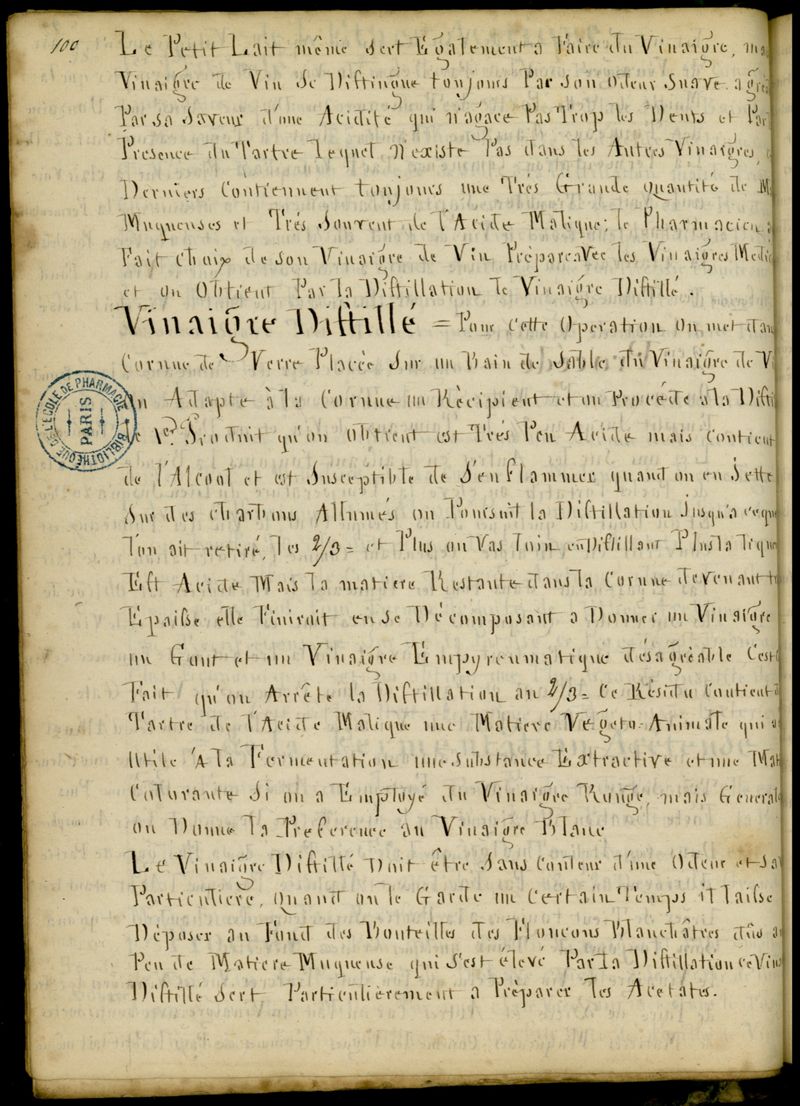 100
Le Petit Lait même Sert Egalement a Faire du Vinaigre,
Vinaigre de Vin Se Distingue toujours Par Son Odeur Suave
Par Sa Saveur d'une Acidité qui n'agace Pas Trop les Dents et Par
Présence du Tartre lequel N'existe Pas dans les Autres Vinaigres,
Derniers Contiennent toujours une Très Grande quantité de
Muqueuses et Très Souvent de l'Acide Malique; le Pharmacien
Fait Choix de Son Vinaigre de Vin, Prépare Avec les Vinaigres
et on Obtient Par la Distillation le Vinaigre Distillé.
Vinaigre Distillé = Pour Cette Operation On met
Cornue de Verre Placée Sur un Bain de Sable du Vinaigre de
On Adapte à la Cornue un Récipient et on Procéde a la
Le 1er Produit qu'on obtient est Très Peu Acide mais Contient
de l'Alcool et est Susceptible de S'enflammer quand on en Jette
Sur des Charbons Allumés on Poursuit la Distillation Jusqu'a ceque
l'on ait retiré, les 2/3 = et Plus on Vas loin en Distillant Plus la
Est Acide Mais la matiere Restante dans la Cornue devenant
Epaisse elle Finirait en Se Décomposant a Donner un Vinaigre
un Gout et un Vinaigre Empyreumatique désagréable
Fait qu'on Arrête la Distillation au 2/3 = Ce Résidu Contient
Tartre de l'Acide Malique une Matiere Végeto-Animale qui
Utile à la Fermentation une Substance Extractive et une
Colorante Si on a Employé du Vinaigre Rouge, mais
on Donne la Preference au Vinaigre Blanc
Le Vinaigre Distillé Doit être Sans Couleur d'une Odeur et
Particuliere, Quand on le Garde un Certain Temps il laisse
Déposer au Fond des Bouteilles des Floncons Blanchâtres dûs
Peu de Matiere Muqueuse qui S'est élevé Par la Distillation ce
Distillé Sert Particulièrement a Préparer les Acetates.
BIBLIOTHÈQUE DE L'ECOLE DE PHARMACIE
PARIS